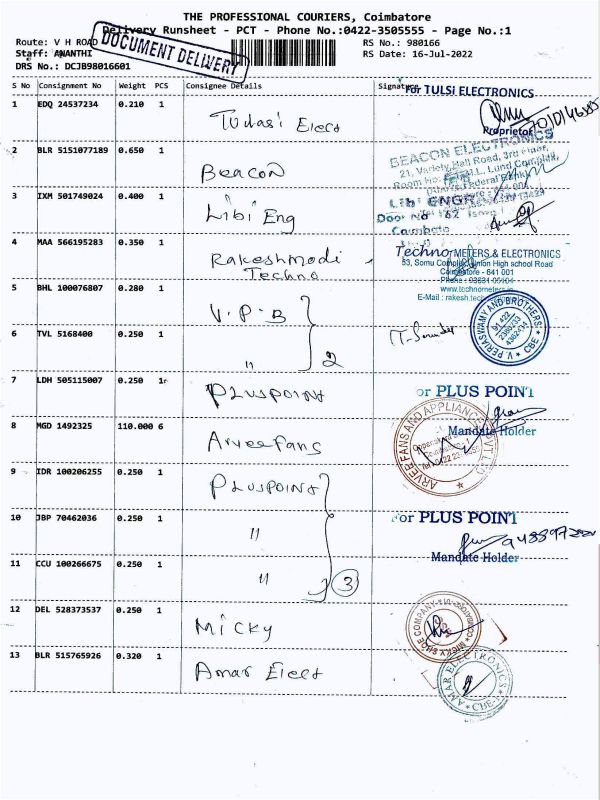 THE PROFESSIONAL COURIERS, Coimbatore
Delivery Runsheet - PCT - Phone No.:0422-3505555 - Page No.:1
Route: V H ROAD
RS No.: 980166
Staff: ANANTHI
RS Date: 16-Jul-2022
DRS No.: DCJB98016601
DOCUMENT DELIVERY
S No Consignment No Weight PCS Consignee Details Signature
For TULSI ELECTRONICS
1 EDQ 24537234 0.210 1 Tudasi Elect
Proprietor
2 BLR 5151077189 0.650 1 Beacon
BEACON ELECTRONICS
21, Variety Hall Road, 3rd Floor,
3 IXM 501749024 0.400 1 Libi Eng
Door No 62
4 MAA 566195283 0.350 1 Rakeshmodi
Techno
Techno METERS & ELECTRONICS
53, Somu Complex, Union High school Road
Coimbatore - 641 001
Phone : 93631 05104
www.technometers.in
5 BHL 100076807 0.280 1 V.P.B
6 TVL 5168400 0.250 1 " 2
V. PERIASWAMY AND BROTHERS
CBE
7 LDH 505115007 0.250 1 PLUSPOINT
For PLUS POINT
Mandate Holder
8 MGD 1492325 110.000 6 Arveefans
ARVEE FANS AND APPLIANCES
9 IDR 100206255 0.250 1 PLUSPOINT
10 JBP 70462036 0.250 1 "
For PLUS POINT
Mandate Holder
11 CCU 100266675 0.250 1 " 3
12 DEL 528373537 0.250 1 Micky
MICKY SHOE COMPANY
13 BLR 515765926 0.320 1 Amar Elect
AMAR ELECTRONICS
CBE-1